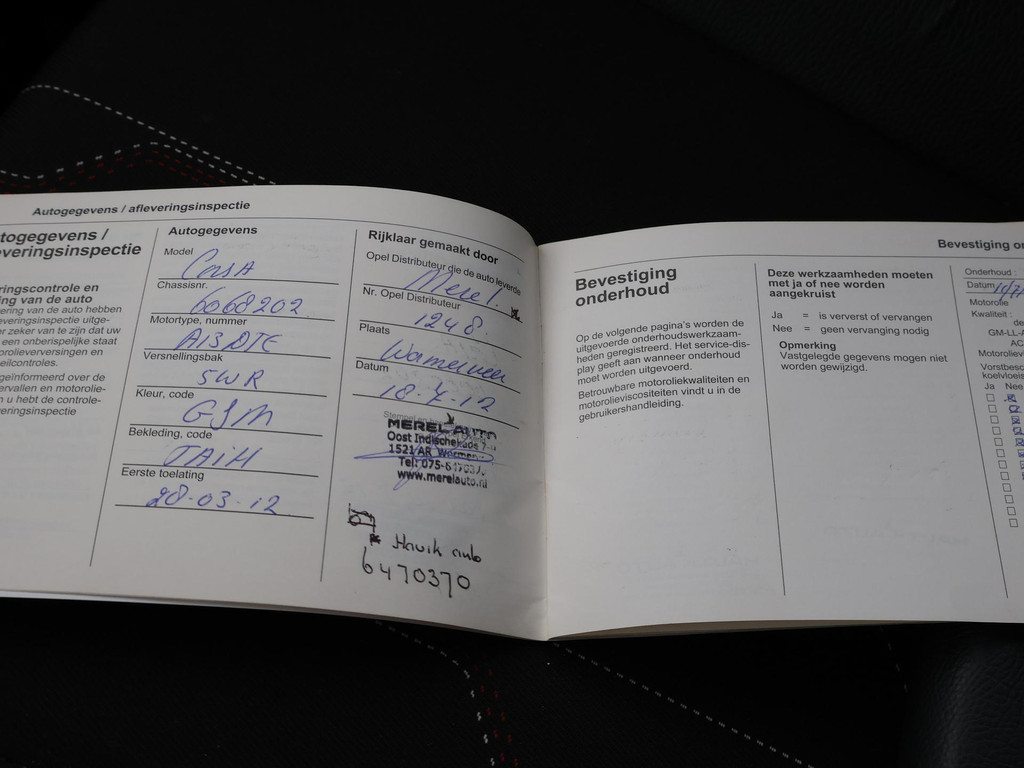 Autogegevens / afleveringsinspectie
togegevens /
everingsinspectie
ringscontrole en
ing van de auto
ering van de auto hebben
everingsinspectie uitge-
er zeker van te zijn dat uw
een onberispelijke staat
orolieverversingen en
eilcontroles.
geïnformeerd over de
ervallen en motorolie-
n u hebt de controle-
eringsinspectie
Autogegevens
Model
Corsa
Chassisnr.
6068202
Motortype, nummer
A13DTE
Versnellingsbak
5WR
Kleur, code
GSM
Bekleding, code
TAIH
Eerste toelating
28-03-12
Rijklaar gemaakt door
Opel Distributeur die de auto leverde
Merel
Nr. Opel Distributeur
1248.
Plaats
Wormerveer
Datum
18-4-12
MEREL AUTO
Oost Indischekade
1521 AR Wormer
Tel: 075-
www.merelauto.nl
Havik auto
6470370
Bevestiging
onderhoud
Op de volgende pagina's worden de
uitgevoerde onderhoudswerkzaam-
heden geregistreerd. Het service-dis-
play geeft aan wanneer onderhoud
moet worden uitgevoerd.
Betrouwbare motoroliekwaliteiten en
motorolieviscositeiten vindt u in de
gebruikershandleiding.
Deze werkzaamheden moeten
met ja of nee worden
aangekruist
Ja = is ververst of vervangen
Nee = geen vervanging nodig
Opmerking
Vastgelegde gegevens mogen niet
worden gewijzigd.
Bevestiging on
Onderhoud :
Datum
Motorolie
Kwaliteit :
de
GM-LL-A
AC
Motoroliev
Vorstbesc
koelvloeis
Ja Nee